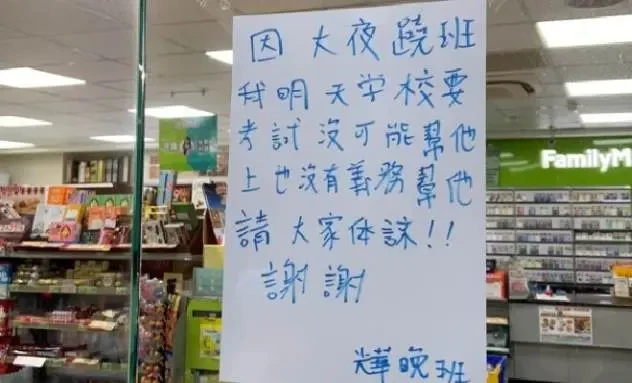 因 大夜蹺班
我明天学校要
考試沒可能幫他
上也沒有義務幫他
請大家体諒!!
謝謝
晚班
FamilyM